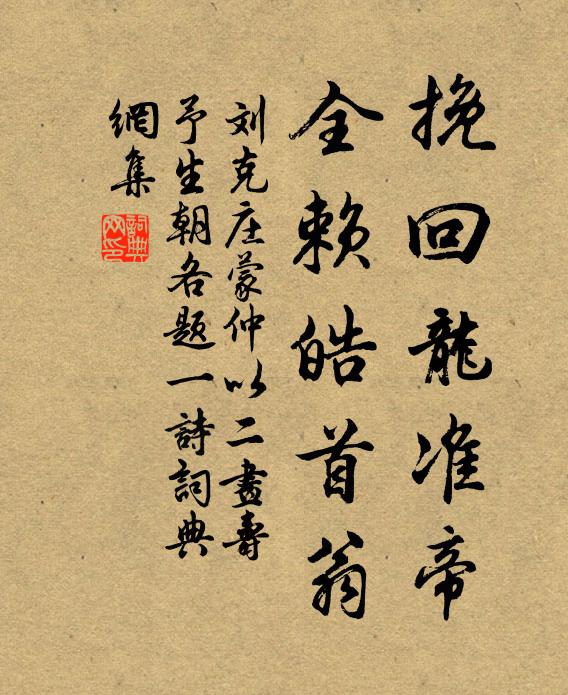 挽回龍准帝
全赖皓首翁
刘克庄蒙仲以二畫壽
予生朝各题一詩詞典
網集
詞典
网印